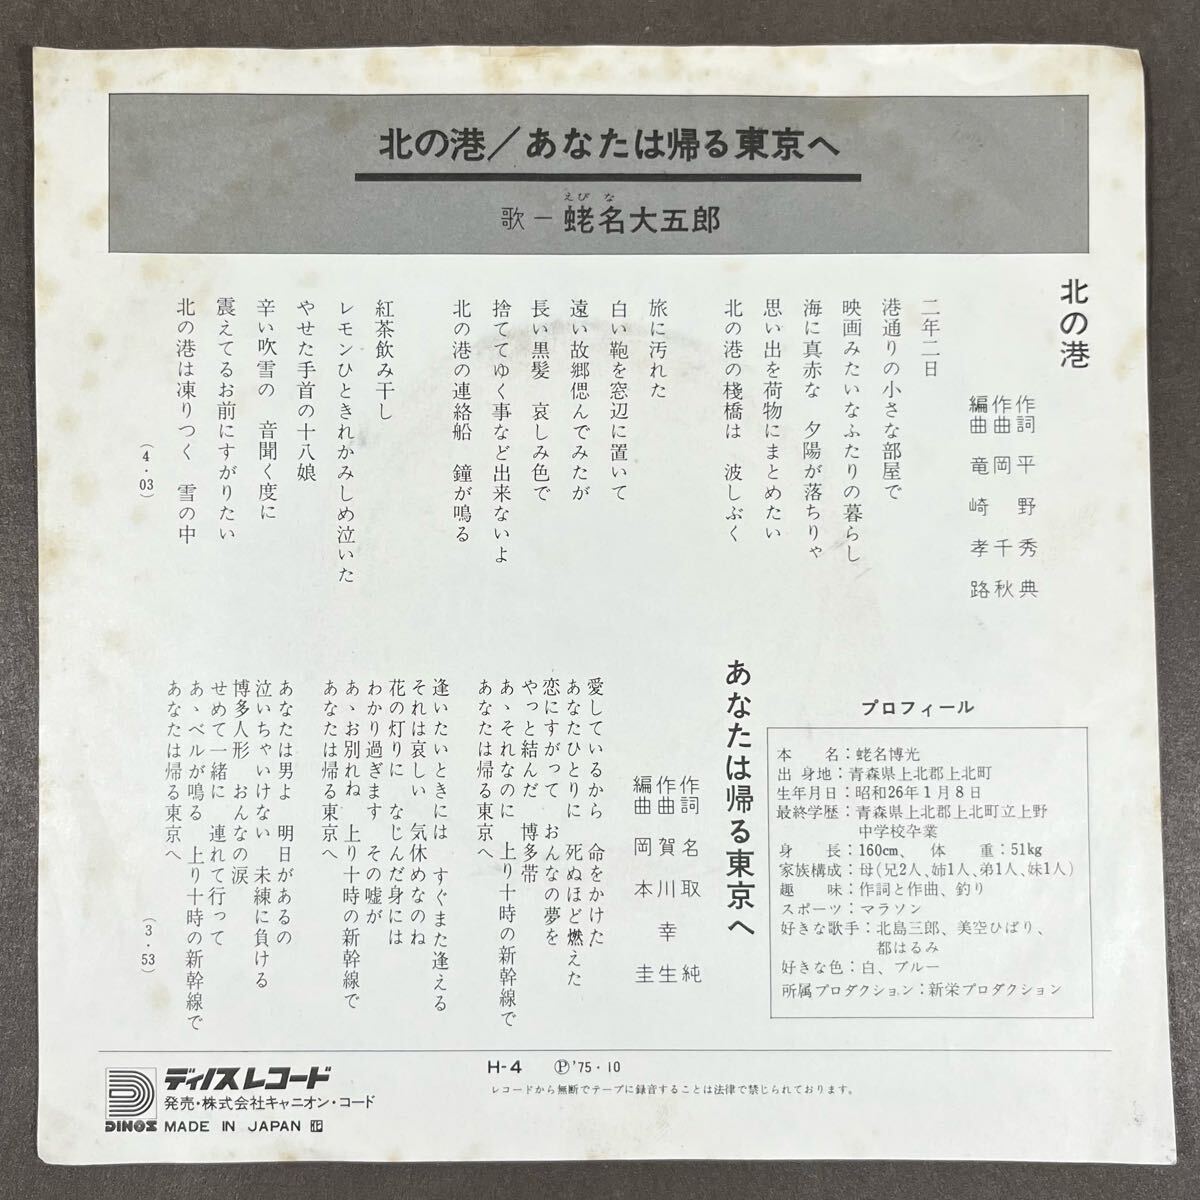 北の港／あなたは帰る東京へ
えびな
歌ー蛯名大五郎
北の港
作詞 平野秀典
作曲 岡千秋
編曲 竜崎孝路
二年二日
港通りの小さな部屋で
映画みたいなふたりの暮らし
海に真赤な 夕陽が落ちりゃ
思い出を荷物にまとめたい
北の港の棧橋は 波しぶく
旅に汚れた
白い鞄を窓辺に置いて
遠い故郷偲んでみたが
長い黒髪 哀しみ色で
捨ててゆく事など出来ないよ
北の港の連絡船 鐘が鳴る
紅茶飲み干し
レモンひときれかみしめ泣いた
やせた手首の十八娘
辛い吹雪の 音聞く度に
震えてるお前にすがりたい
北の港は凍りつく 雪の中
(4・03)
あなたは帰る東京へ
作詞 名取純
作曲 賀川幸生
編曲 岡本圭
愛しているから 命をかけた
あなたひとりに 死ぬほど燃えた
恋にすがって おんなの夢を
やっと結んだ 博多帯
あゝそれなのに 上り十時の新幹線で
あなたは帰る東京へ
逢いたいときには すぐまた逢える
それは哀しい 気休めなのね
花の灯りに なじんだ身には
わかり過ぎます その嘘が
あゝお別れね 上り十時の新幹線で
あなたは帰る東京へ
あなたは男よ 明日があるの
泣いちゃいけない 未練に負ける
博多人形 おんなの涙
せめて一緒に 連れて行って
あゝベルが鳴る 上り十時の新幹線で
あなたは帰る東京へ
(3・53)
プロフィール
本名：蛯名博光
出身地：青森県上北郡上北町
生年月日：昭和26年1月8日
最終学歴：青森県上北郡上北町立上野
中学校卒業
身長：160cm、体重：51kg
家族構成：母(兄2人、姉1人、弟1人、妹1人)
趣味：作詞と作曲、釣り
スポーツ：マラソン
好きな歌手：北島三郎、美空ひばり、
都はるみ
好きな色：白、ブルー
所属プロダクション：新栄プロダクション
ディノスレコード
発売・株式会社キャニオン・コード
DINOS MADE IN JAPAN
H-4 Ⓟ'75・10
レコードから無断でテープに録音することは法律で禁じられております。